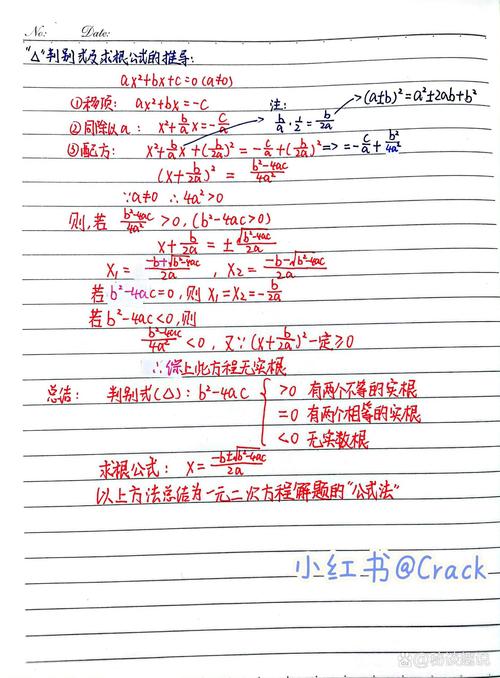 No:      Date:
"△"判别式及求根公式的推导:
ax²+bx+c=0 (a≠0)
①移项: ax²+bx=-c
注:
(a±b)²=a²±2ab+b²
②同除以a: x²+b/a x=-c/a
b/a·1/2=b/2a
③配方: x²+b/a x+(b/2a)²=-c/a+(b/2a)² => -c/a+b²/4a²
(x+b/2a)²=(b²-4ac)/4a²
∵a≠0 ∴4a²>0
则,若 (b²-4ac)/4a²>0,(b²-4ac>0)
x+b/2a=±√(b²-4ac)/2a
x₁=(-b+√(b²-4ac))/2a, x₂=(-b-√(b²-4ac))/2a
若b²-4ac=0,则x₁=x₂=-b/2a
若b²-4ac<0,则
(b²-4ac)/4a²<0,又∵(x+b/2a)²一定≥0
∴综上此方程无实根
总结: 判别式(△): b²-4ac { >0 有两个不等的实根
=0 有两个相等的实根
<0 无实数根
求根公式: x=(-b±√(b²-4ac))/2a
以上方法总结为一元二次方程解题的"公式法"
小红书@Crack